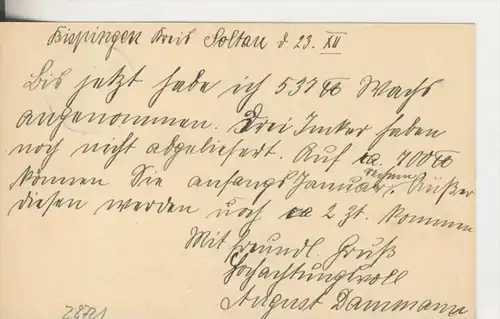 Bispingen Kreis Soltau d. 23. XII
Bis jetzt habe ich 537 ℔ Wachs
angenommen. Drei Imker haben
noch nicht abgeliefert. Auf ca. 700 ℔
können Sie anfangs Januar rechnen. Außer
diesen werden noch ca 2 Ztr. kommen
Mit freundl. Gruß
Hochachtungsvoll
August Dammann
28721